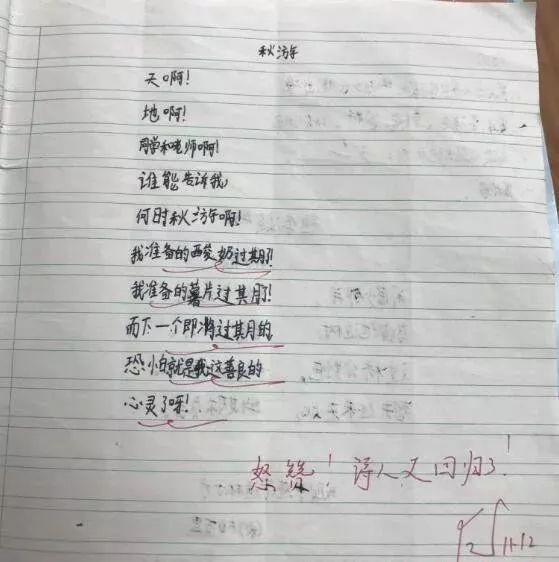 秋游
天啊!
地啊!
同学和老师啊!
谁能告诉我
何时秋游啊!
我准备的酸奶过期了!
我准备的薯片过期了!
而下一个即将过期的
恐怕就是我这善良的
心灵了呀!
怒赞! 诗人又回归了!
11.12